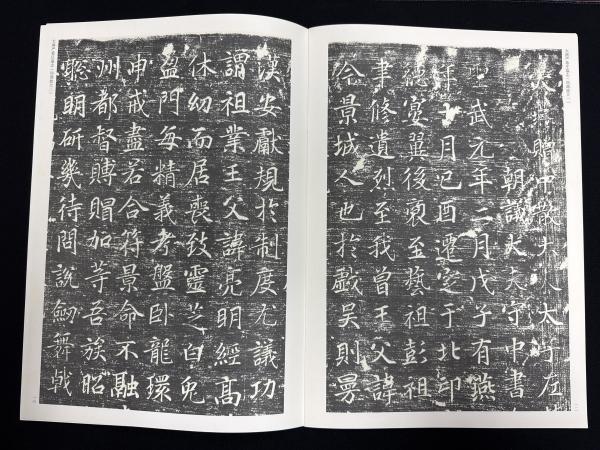 贈中散大夫太子左
朝議大夫守中書
聖武元年二月戊子有燕
年十月己酉遷窆于北邙
德宴翼後裔至藝祖彭祖
聿修遺烈至我曾王父諱
令景城人也於戲吳則曇
漢安獻規於制度尤議功
謂祖業王父諱亮明經高
休幼而居喪致靈芝白兔
盈門每精義考盤卧龍環
申戒盡若合符景命不融
州都督賻賵加等吾族昭
聰明研幾待問說劒舞戟